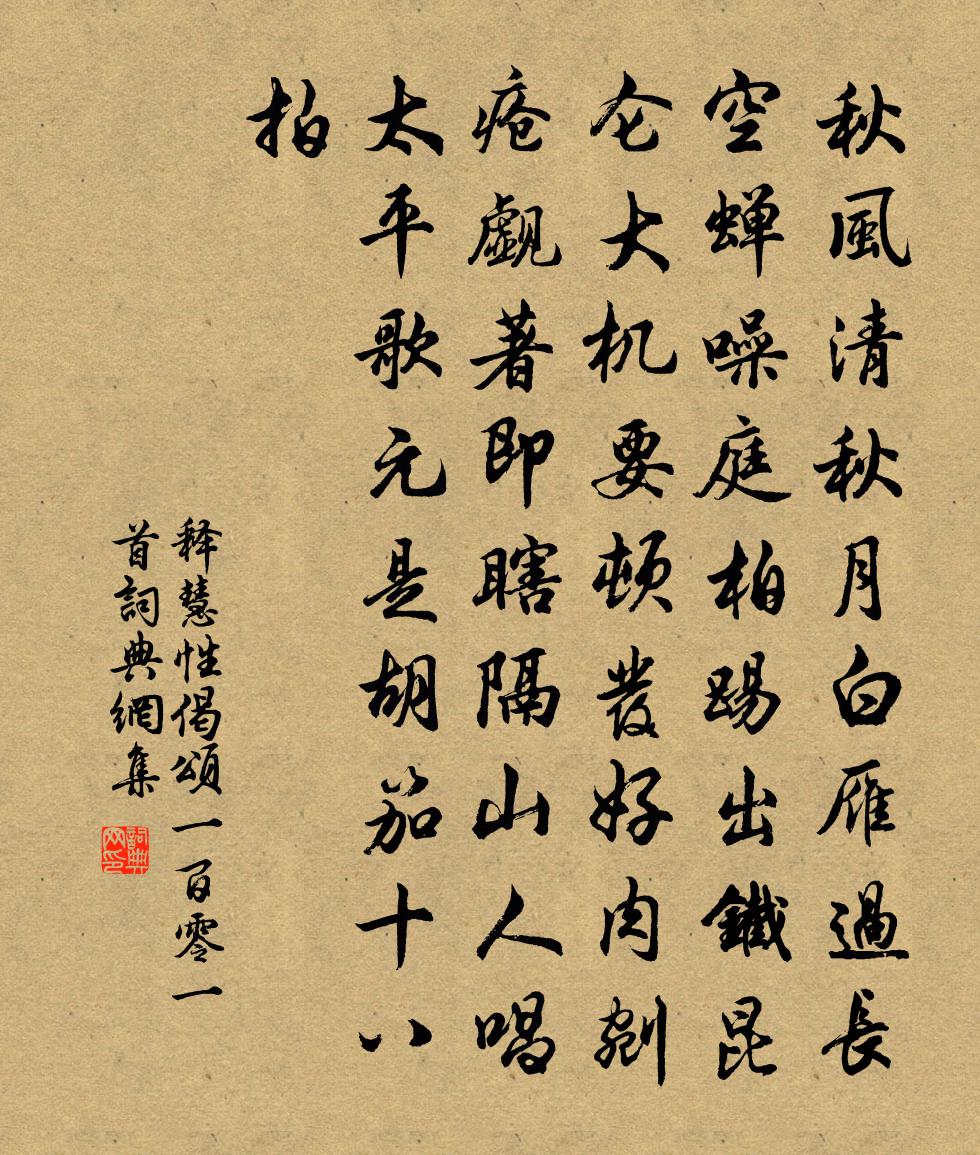 秋風清秋月白雁過長
空蝉噪庭柏踢出鐵昆
仑大机要頓發好肉剜
疮觑著即瞎隔山人唱
太平歌元是胡笳十八
拍
释慧性偈頌一百零一
首詞典網集
詞典网印